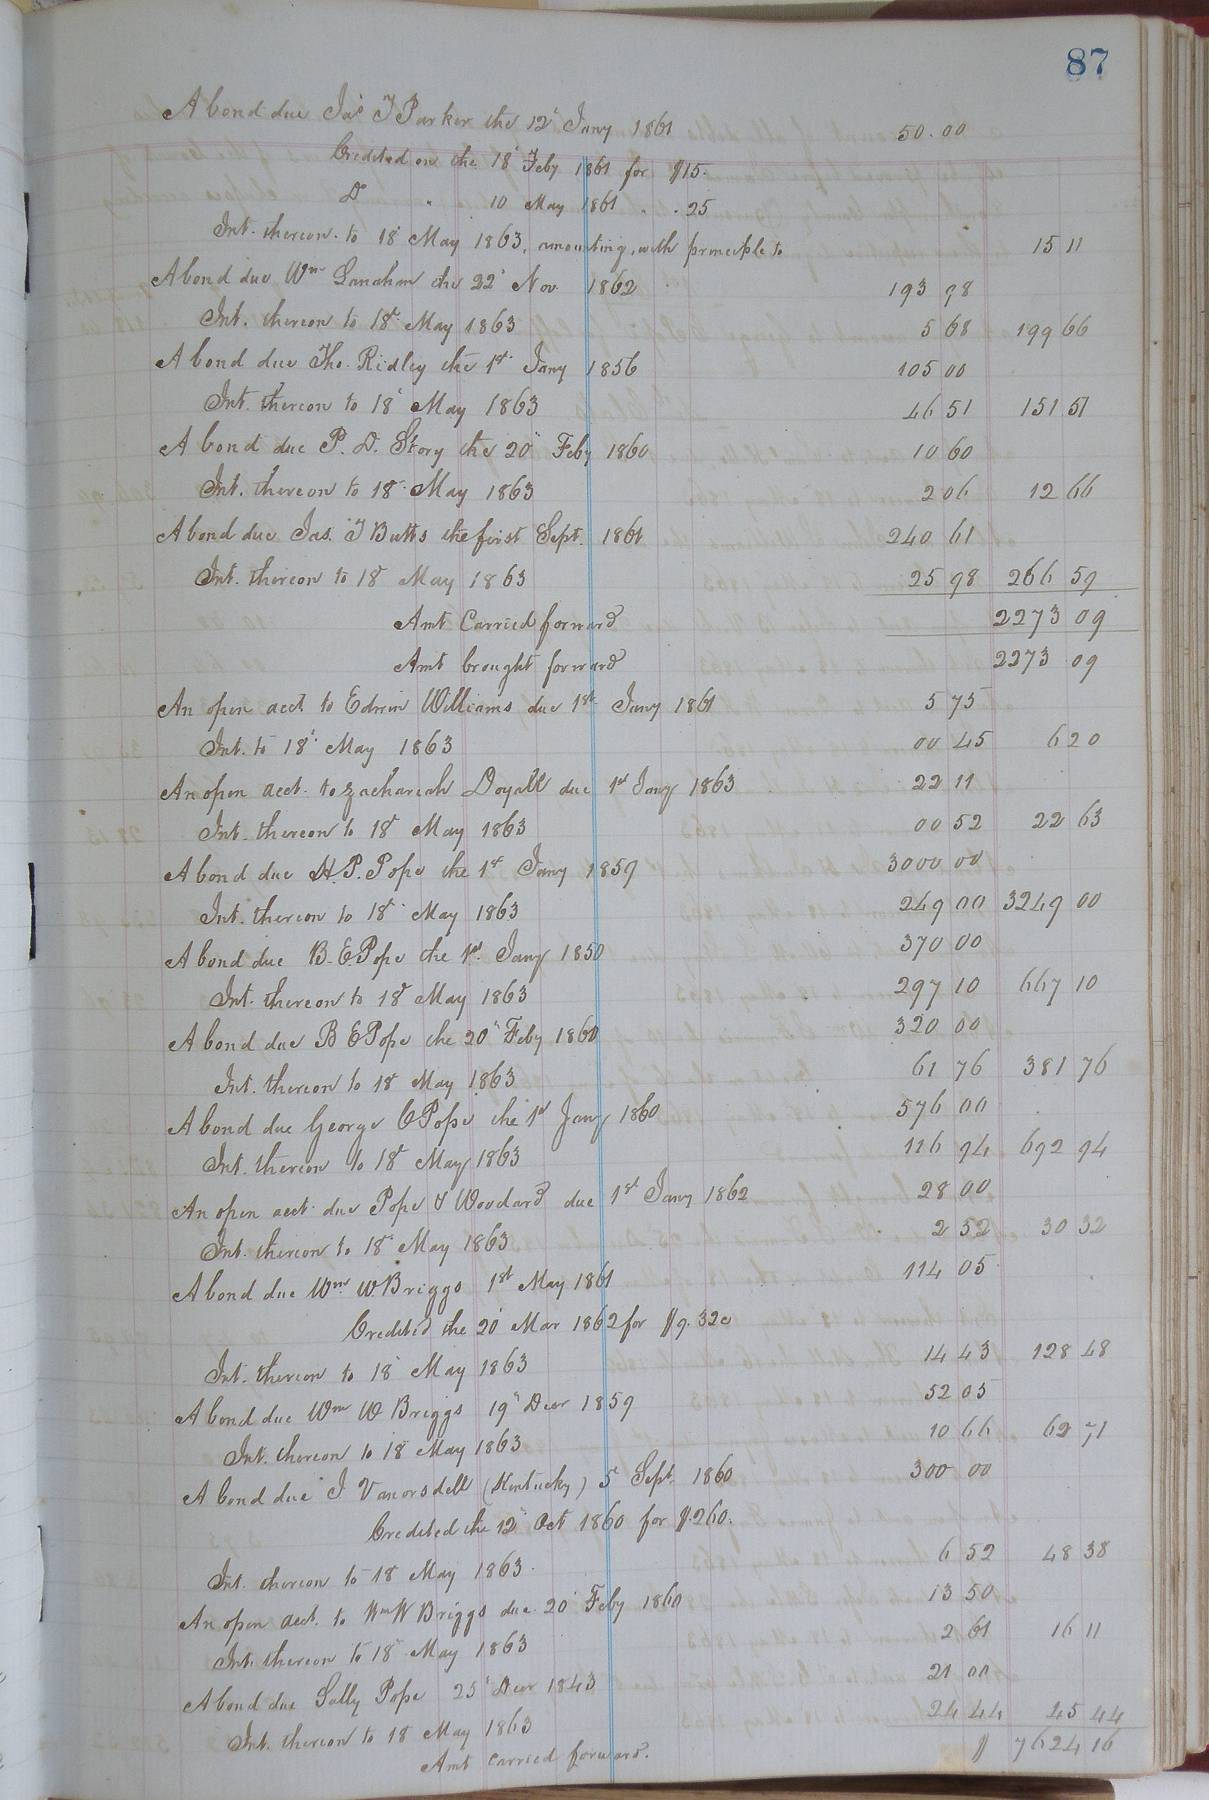 87
A bond due Jas T Parker the 12' Jany 1861 50.00
Credited on the 18' Feby 1861 for $15.
Do " 10 May 1861 " " 25
Int. thereon to 18' May 1863, amounting, with principle to 15 11
A bond due Wm Lanahan the 22' Nov 1862 193 98
Int. thereon to 18' May 1863 5 68 199 66
A bond due Tho. Ridley the 1st Jany 1856 105 00
Int. thereon to 18' May 1863 46 51 151 51
A bond due P. D. Story the 20" Feby 1860 10 60
Int. thereon to 18' May 1863 2 06 12 66
A bond due Jas. T Butts the first Sept. 1861 240 61
Int. thereon to 18' May 1863 25 98 266 59
Amt Carried forward 2273 09
Amt brought forward 2273 09
An open acct to Edwin Williams due 1st Jany 1861 5 75
Int. to 18' May 1863 00 45 6 20
An open acct. to Zachariah Doyall due 1st Jany 1863 22 11
Int. thereon to 18' May 1863 00 52 22 63
A bond due H. P. Pope the 1st Jany 1859 3000 00
Int. thereon to 18' May 1863 249 00 3249 00
A bond due B. E. Pope the 1st Jany 1850 370 00
Int. thereon to 18' May 1863 297 10 667 10
A bond due B E Pope the 20" Feby 1860 320 00
Int. thereon to 18 May 1863 61 76 381 76
A bond due George C Pope the 1st Jany 1860 576 00
Int. thereon to 18' May 1863 116 94 692 94
An open acct due Pope & Woodard due 1st Jany 1862 28 00
Int. thereon to 18' May 1863 2 52 30 32
A bond due Wm W Briggs 1st May 1861 114 05
Credited the 20' Mar 1862 for $9.32c
Int. thereon to 18' May 1863 14 43 128 48
A bond due Wm W Briggs 19" Decr 1859 52 05
Int. thereon to 18' May 1863 10 66 62 71
A bond due J Vanorsdell (Kentucky) 5' Sept. 1860 300 00
Credited the 12" Oct 1860 for $.260.
Int. thereon to 18 May 1863. 6 52 48 38
An open acct. to Wm W Briggs due 20' Feby 1860 13 50
Int. thereon to 18' May 1863 2 61 16 11
A bond due Sally Pope 25' Decr 1843 21 00
Int. thereon to 18 May 1863 24 44 45 44
Amt carried forward. $ 7624 16